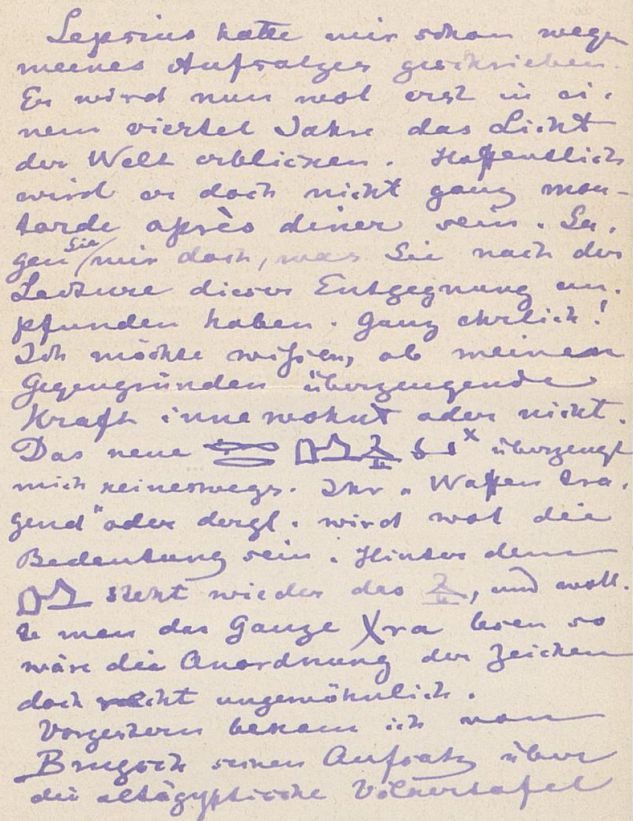 Lepsius hatte mir schon wegen
meines Aufsatzes geschrieben.
Er wird nun wol erst in ei-
nem viertel Jahre das Licht
der Welt erblicken. Hoffentlich
wird er doch nicht ganz mou-
tarde après diner sein. Sa-
gen Sie mir doch, was Sie nach der
Lecture dieser Entgegnung em-
pfunden haben. Ganz ehrlich!
Ich möchte wißen, ob meinen
Gegengründen überzeugende
Kraft innewohnt oder nicht.
Das neue überzeugt
mich keineswegs. Ihr „Waffen tra-
gend" oder dergl. wird wol die
Bedeutung sein. Hinter dem
steht wieder das , und woll-
te man das Ganze Xra lesen so
wäre die Anordnung der Zeichen
doch recht ungewöhnlich.
Vorgestern bekam ich von
Brugsch seinen Aufsatz über
die altägyptische Völkertafel